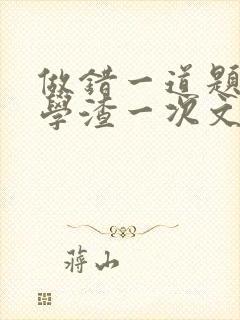 做錯一道題
學渣一次文
蔣山